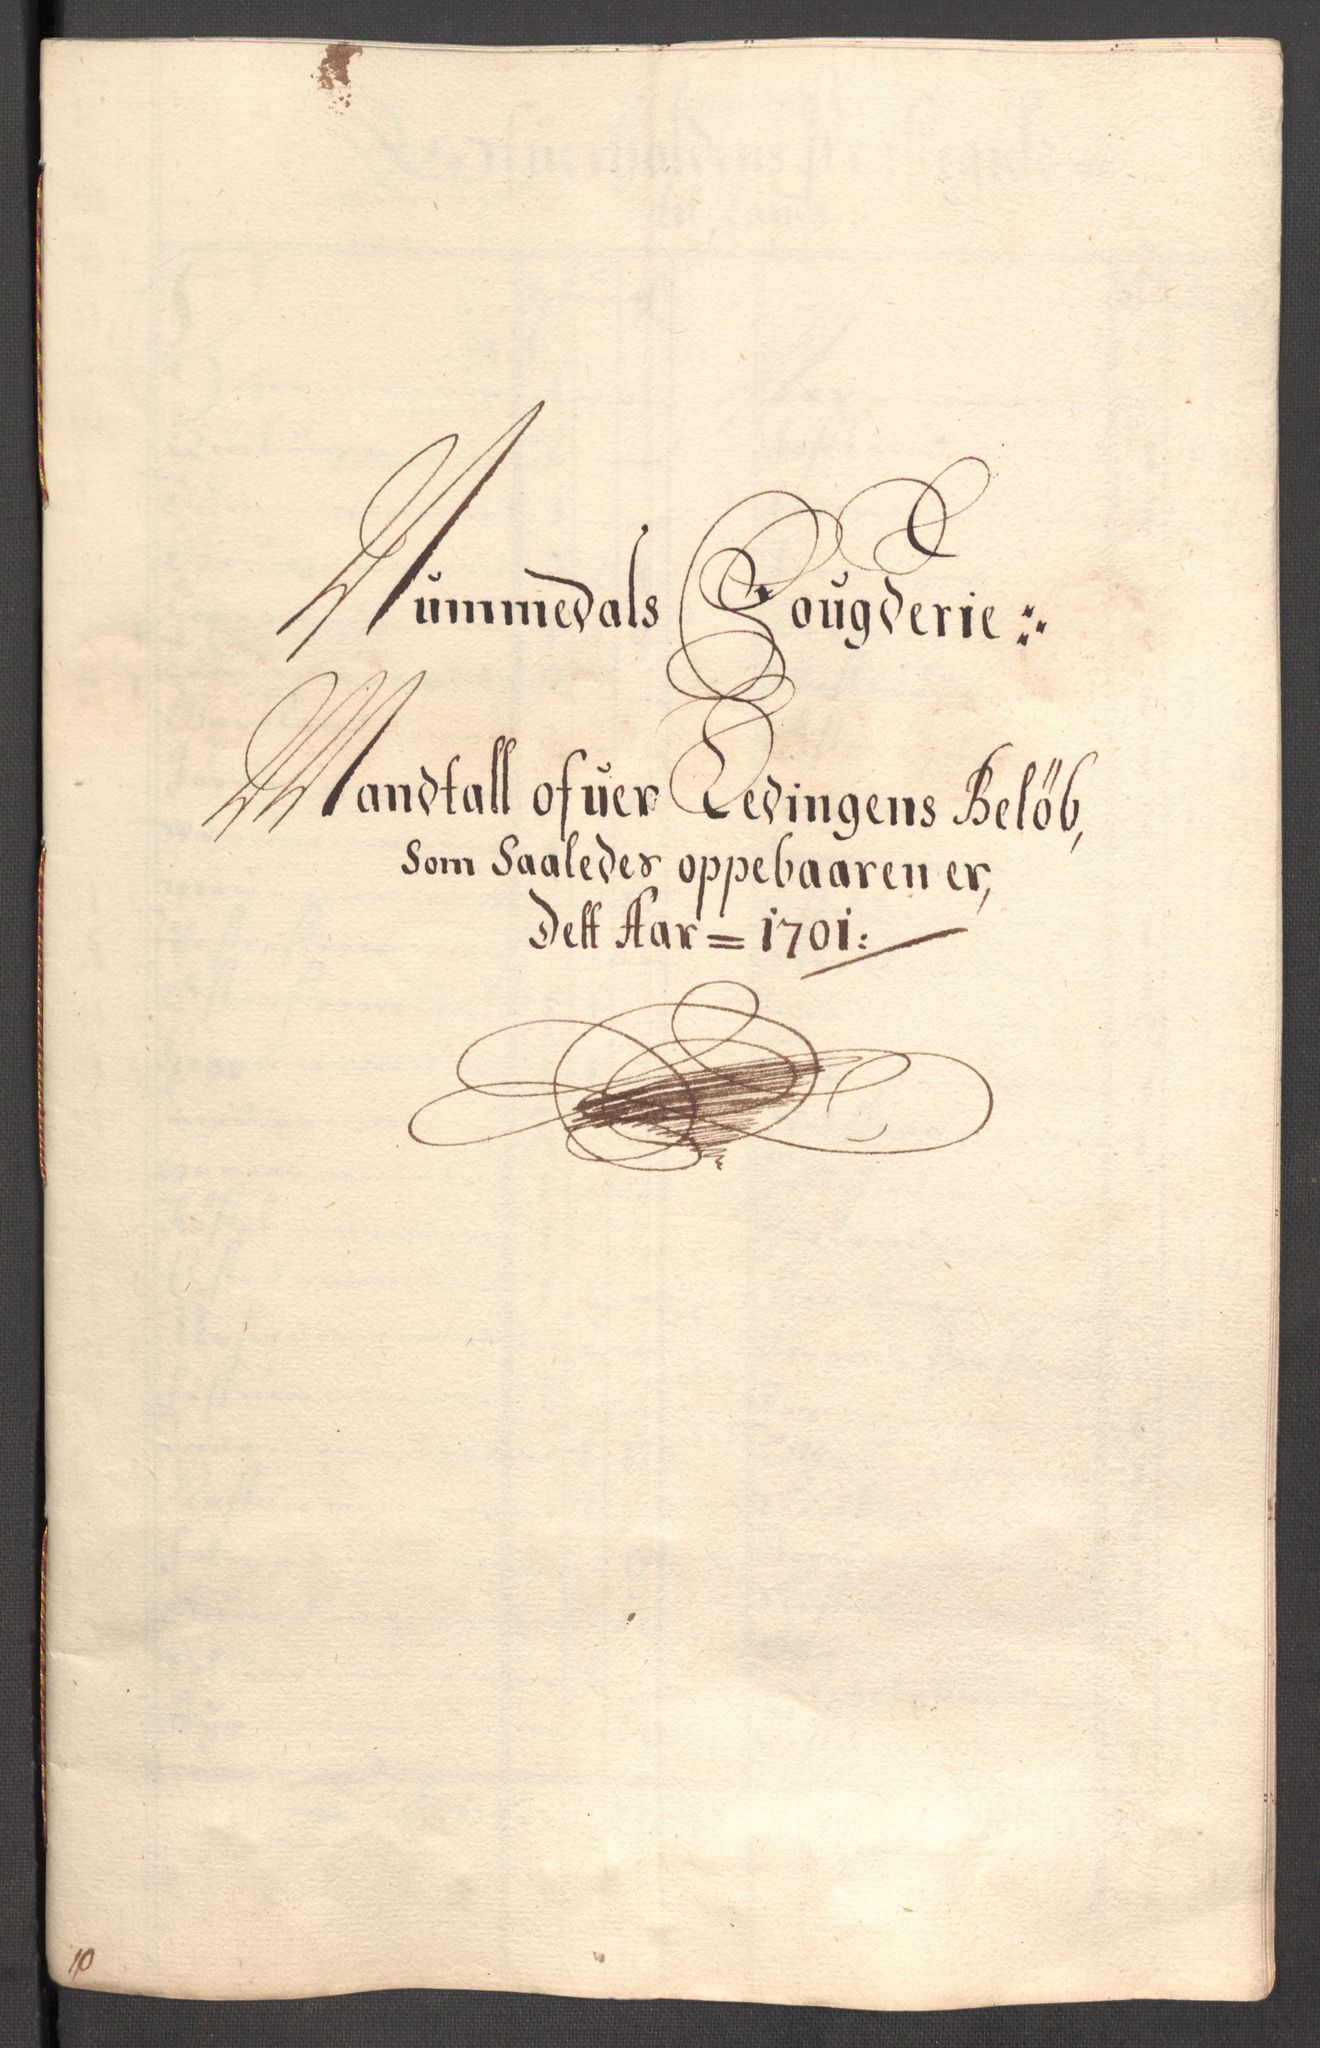 Nummedals Fougderie:
Mandtall ofuer Ledingens Beløb,
Som Saaledes oppebaaren er,
dett Aar = 1701:
10